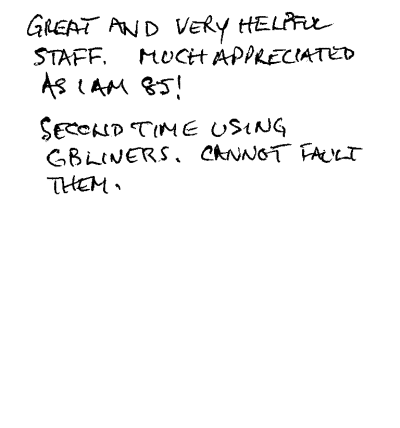 GREAT AND VERY HELPFUL
STAFF. MUCH APPRECIATED
AS I AM 85!
SECOND TIME USING
GBLINERS. CANNOT FAULT
THEM.